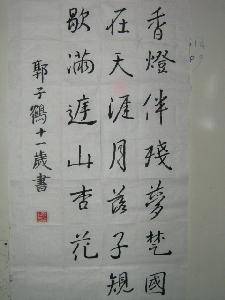 香燈伴殘夢楚國
在天涯月落子規
歇滿庭山杏花
郭子鶴十一歲書